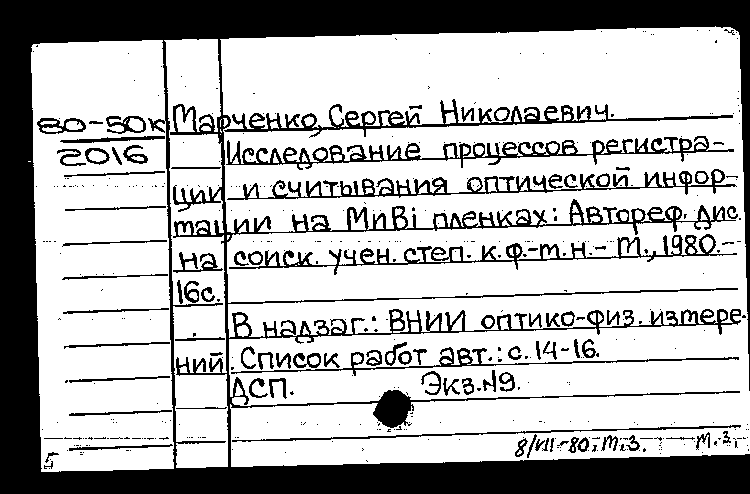 80-50к Марченко, Сергей Николаевич.
2016 Исследование процессов регистра-
ции и считывания оптической инфор-
мации на MnBi пленках: Автореф. дис.
на соиск. учен. степ. к.ф.-м.н. - М., 1980.-
16с.
В надзаг.: ВНИИ оптико-физ. измере-
ний. Список работ авт.: с. 14-16.
ДСП. Экз.№9.
8/VII-80. М.З. М.З.
5